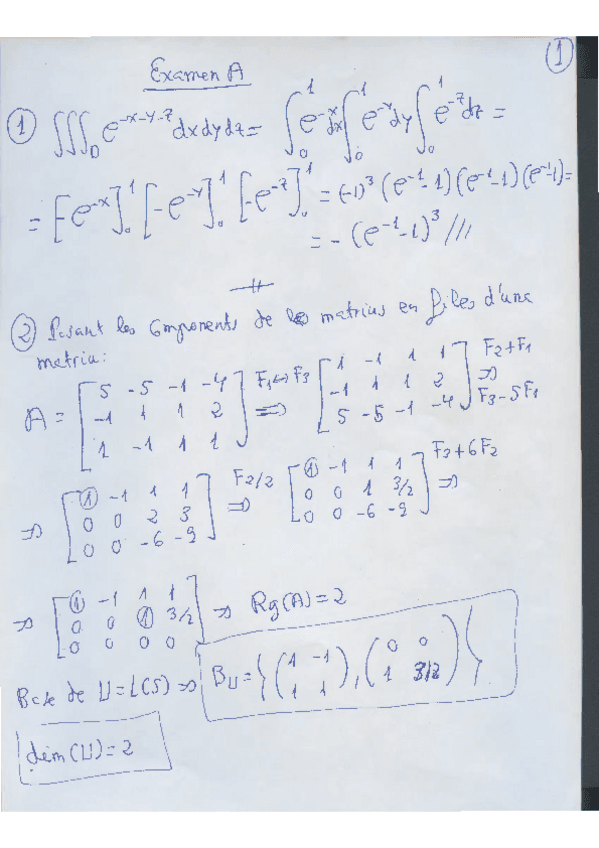 ①
Examen A
① ∭_D e^{-x-y-z} dxdydz = ∫₀¹ e^{-x} dx ∫₀¹ e^{-y} dy ∫₀¹ e^{-z} dz =
= [-e^{-x}]₀¹ [-e^{-y}]₀¹ [-e^{-z}]₀¹ = (-1)³ (e^{-1}-1) (e^{-1}-1) (e^{-1}-1) =
= - (e^{-1}-1)³ ///
② Posant les components de les matrius en files d'una
matriu:
A = [5 -5 -1 -4; -1 1 1 2; 1 -1 1 1] F₁↔F₃ ⇒ [1 -1 1 1; -1 1 1 2; 5 -5 -1 -4] F₂+F₁ ⇒ F₃-5F₁
⇒ [① -1 1 1; 0 0 2 3; 0 0 -6 -9] F₂/2 ⇒ [① -1 1 1; 0 0 1 3/2; 0 0 -6 -9] F₃+6F₂ ⇒
⇒ [① -1 1 1; 0 0 ① 3/2; 0 0 0 0] ⇒ Rg(A)=2
Base de U=L(S) ⇒ B_U = {(1 -1; 1 1), (0 0; 1 3/2)}
dim(U)=2